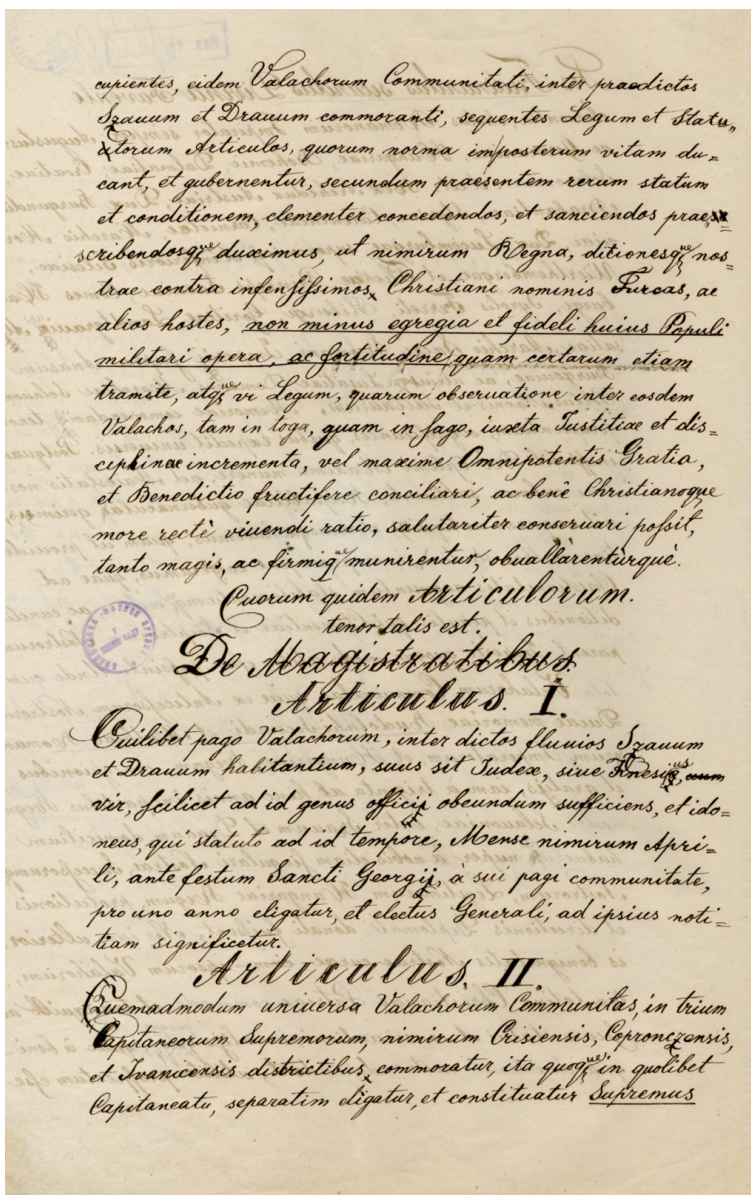 cupientes, eidem Valachorum Communitati, inter praedictos
Szauum et Drauum commoranti, sequentes Legum et Statu„
torum Articulos, quorum norma imposterum vitam du=
cant, et gubernentur, secundum praesentem rerum statum
et conditionem, clementer concedendos, et sanciendos prae=
scribendosq̢ue duximus, ut nimirum Regna, ditionesq̢ue nos=
trae contra infensissimos Christiani nominis Turcas, ac
alios hostes, non minus egregia et fideli huius Populi
militari opera, ac fortitudine, quam certarum etiam
tramite, atq̢ue vi Legum, quarum obseruatione inter eosdem
Valachos, tam in toga, quam in sago, iuxta Iustitiae et dis=
ciplinae incrementa, vel maxime Omnipotentis Gratia,
et Benedictio fructifere conciliari, ac benè Christianoque
more rectè viuendi ratio, salutariter conseruari possit,
tanto magis, ac firmiq̢ue munirentur, obuallàrenturquè.
Quorum quidem Articulorum.
tenor talis est.
De Magistratibus.
Articulus. I.
Cuilibet pago Valachorum, inter dictos fluuios Szauum
et Drauum habitantium, suus sit Iudex, siue Knesius,
vir, scilicet ad id genus officij obeundum sufficiens, et ido=
neus, qui statuto ad id tempore, Mense nimirum Apri=
li, ante festum Sancti Georgij, à sui pagi communitate,
pro uno anno eligatur, et electus Generali, ad ipsius noti=
tiam significetur.
Articulus. II.
Quemadmodum universa Valachorum Communitas, in trium
Capitaneorum Supremorum, nimirum Crisiensis, Copronczensis,
et Ivanicensis districtibus commoratur, ita quoq̢ue in quolibet
Capitaneatu, separatim eligatur, et constituatur Supremus